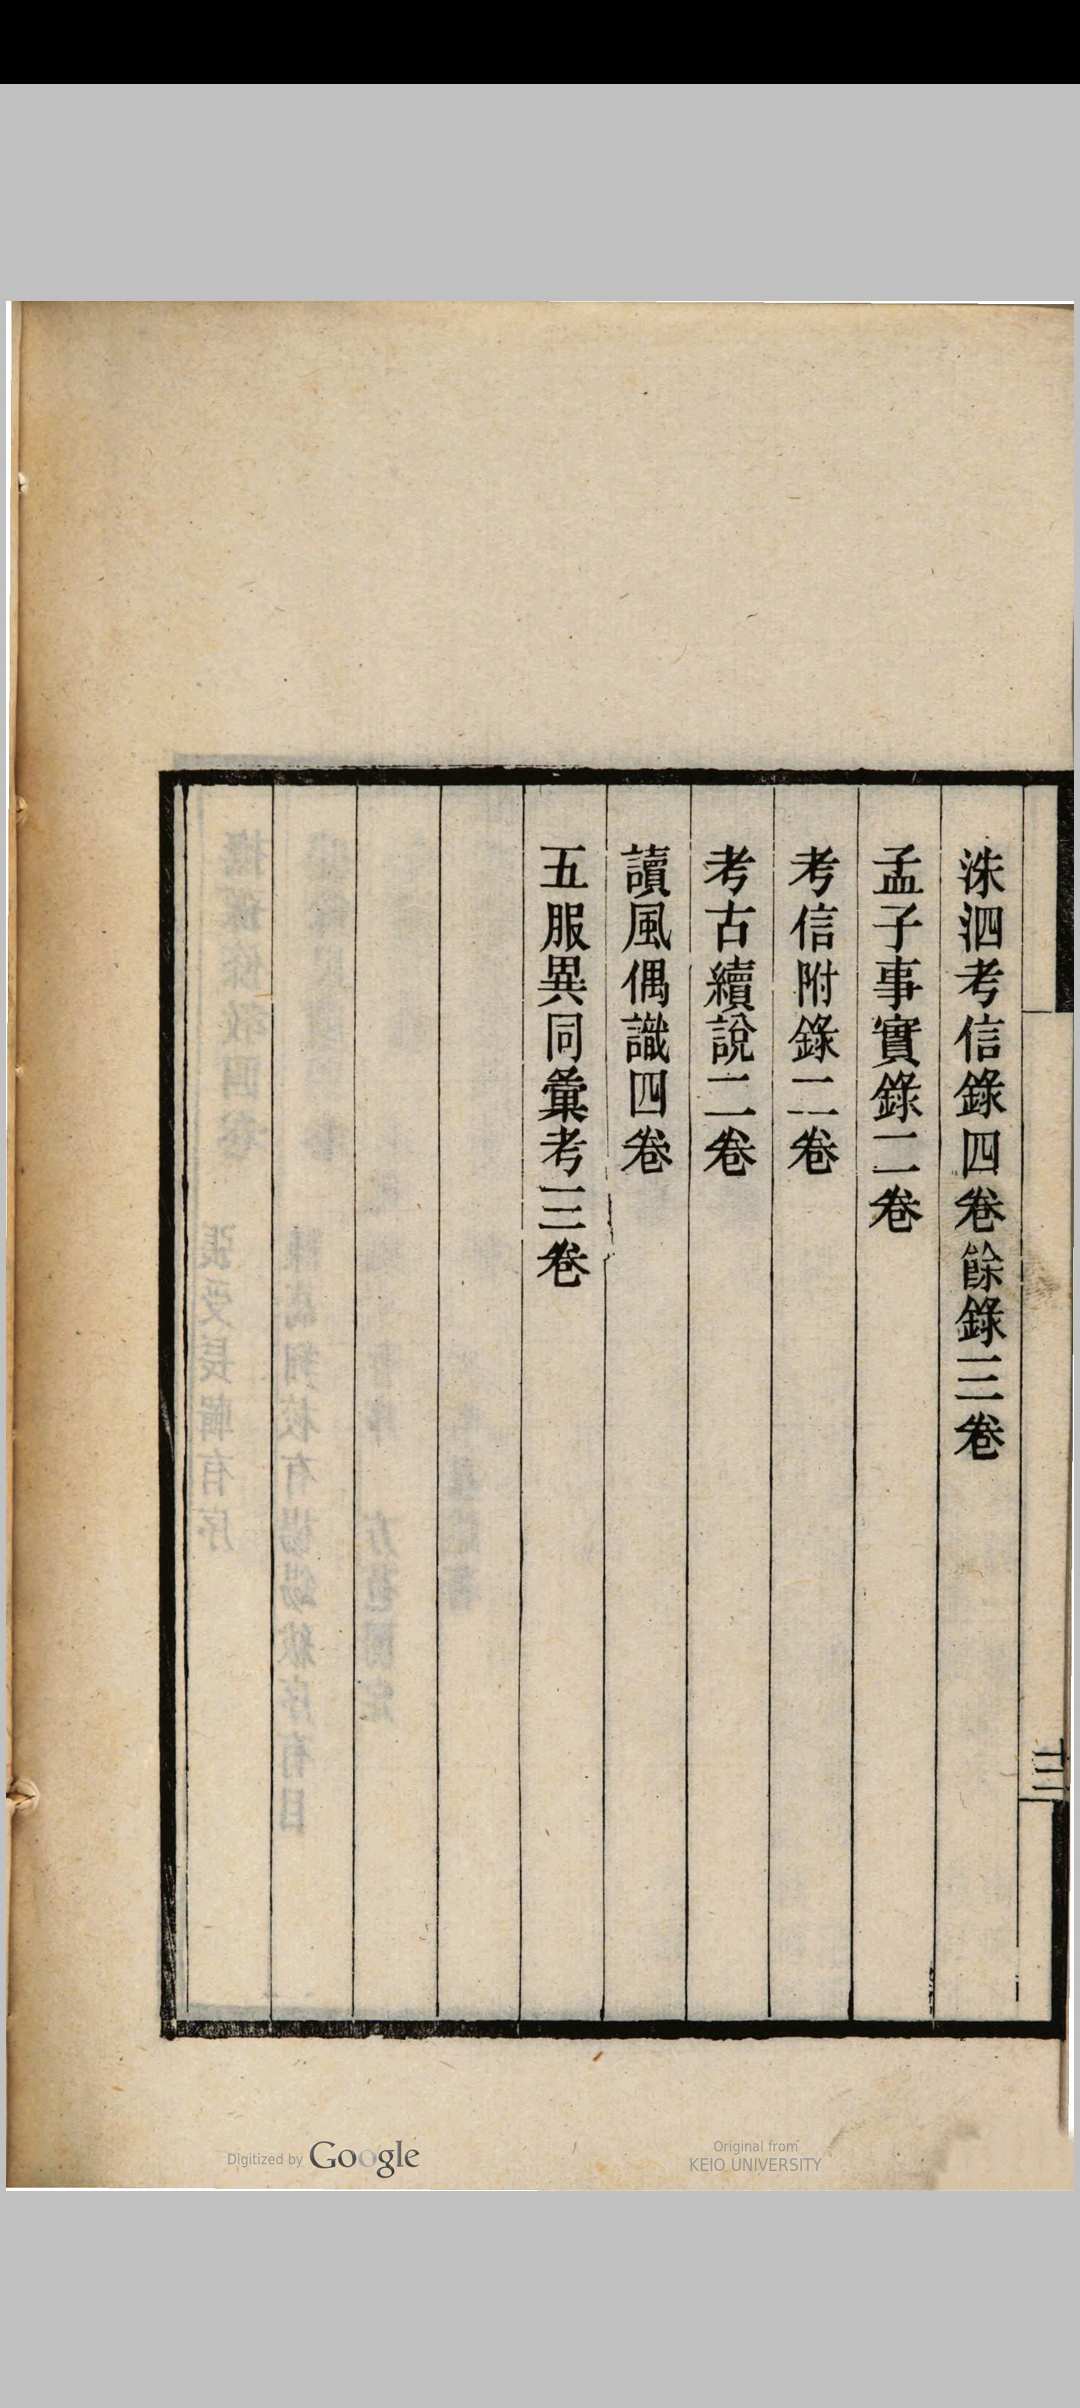 洙泗考信錄四卷餘錄三卷
孟子事實錄二卷
考信附錄二卷
考古續說二卷
讀風偶識四卷
五服異同彙考三卷
十三
Digitized by Google
Original from
KEIO UNIVERSITY